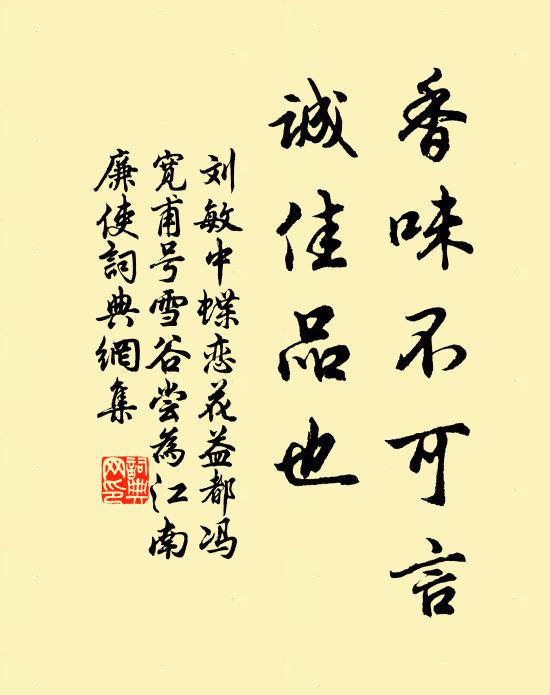 香味不可言
诚佳品也
刘敏中蝶恋花益都冯
宽甫号雪谷尝为江南
廉使詞典網集
詞典
网印